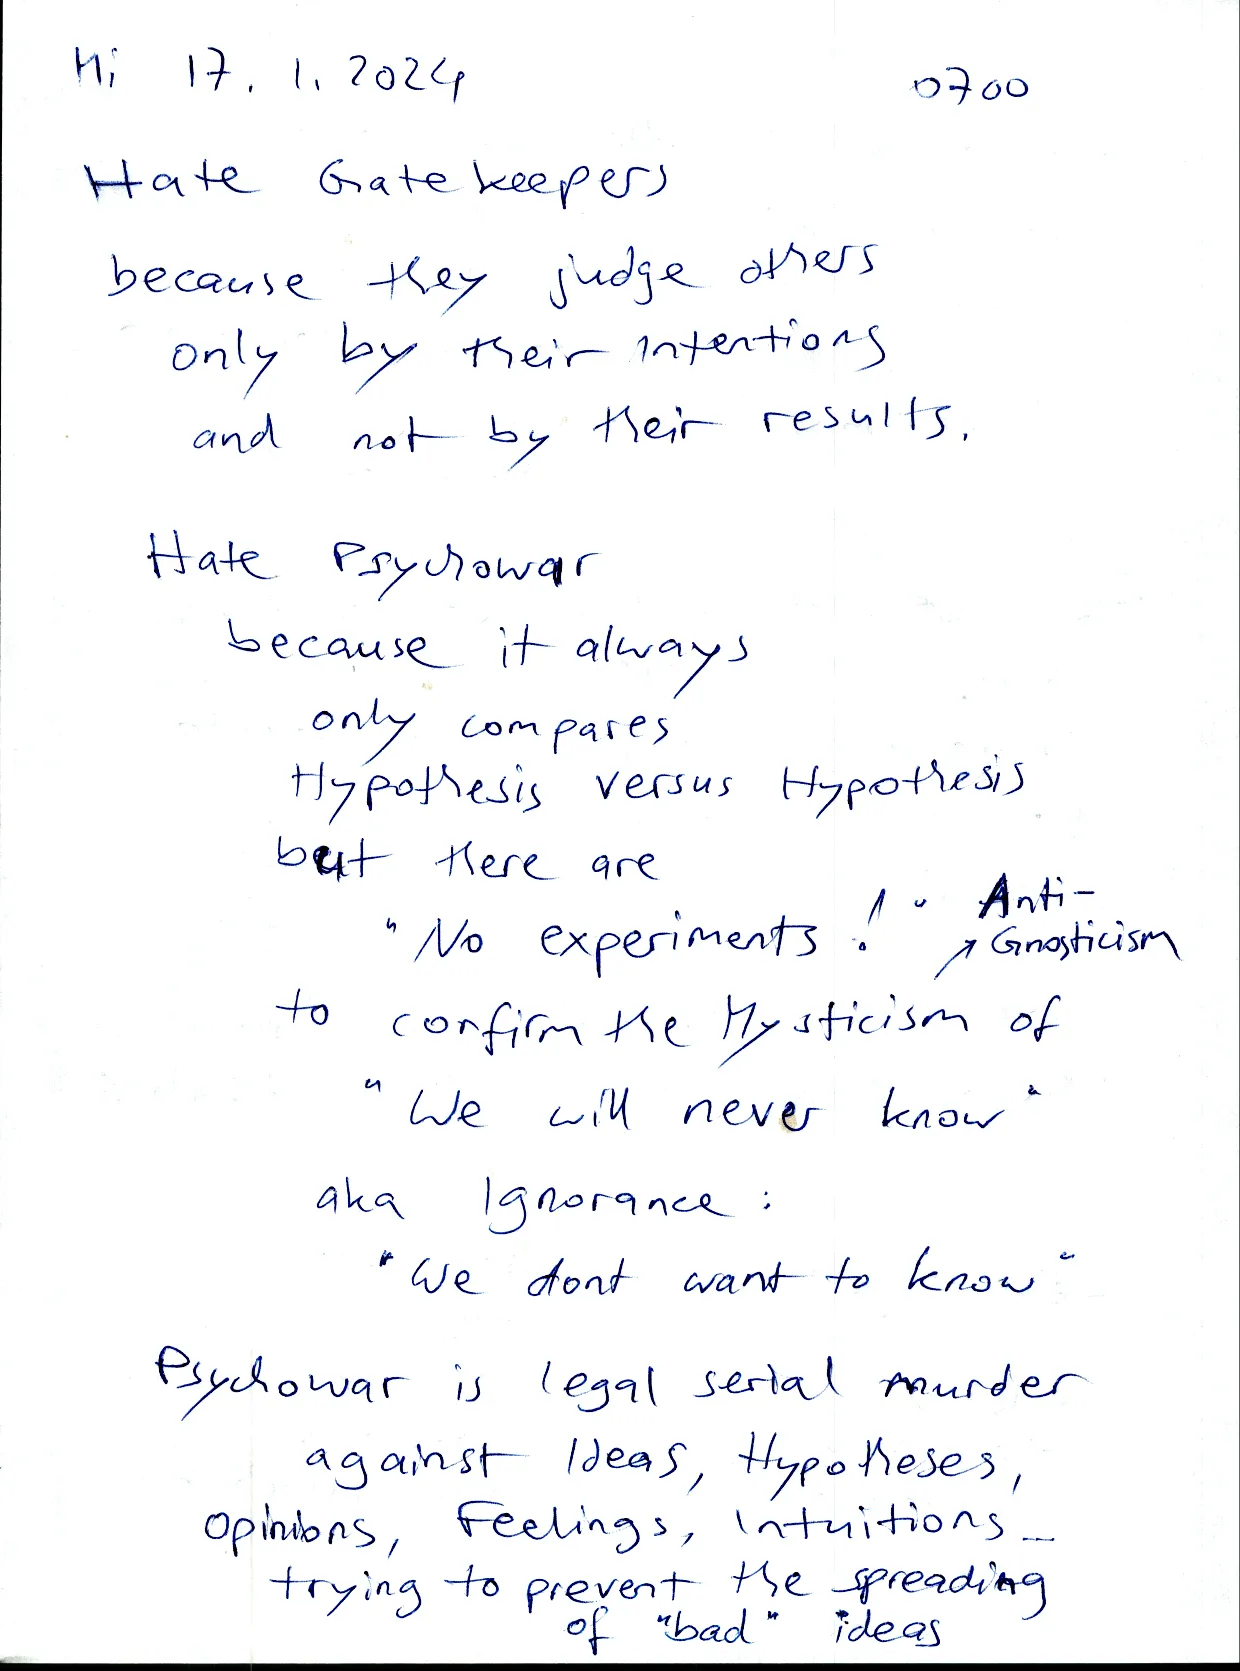 Mi 17.1.2024 0700
Hate Gatekeepers
because they judge others
only by their intentions
and not by their results.
Hate Psychowar
because it always
only compares
Hypothesis versus Hypothesis
but there are
"No experiments!" Anti-
↗ Gnosticism
to confirm the Mysticism of
"We will never know"
aka Ignorance:
"We dont want to know"
Psychowar is legal serial murder
against Ideas, Hypotheses,
Opinions, Feelings, Intuitions _
trying to prevent the spreading
of "bad" ideas